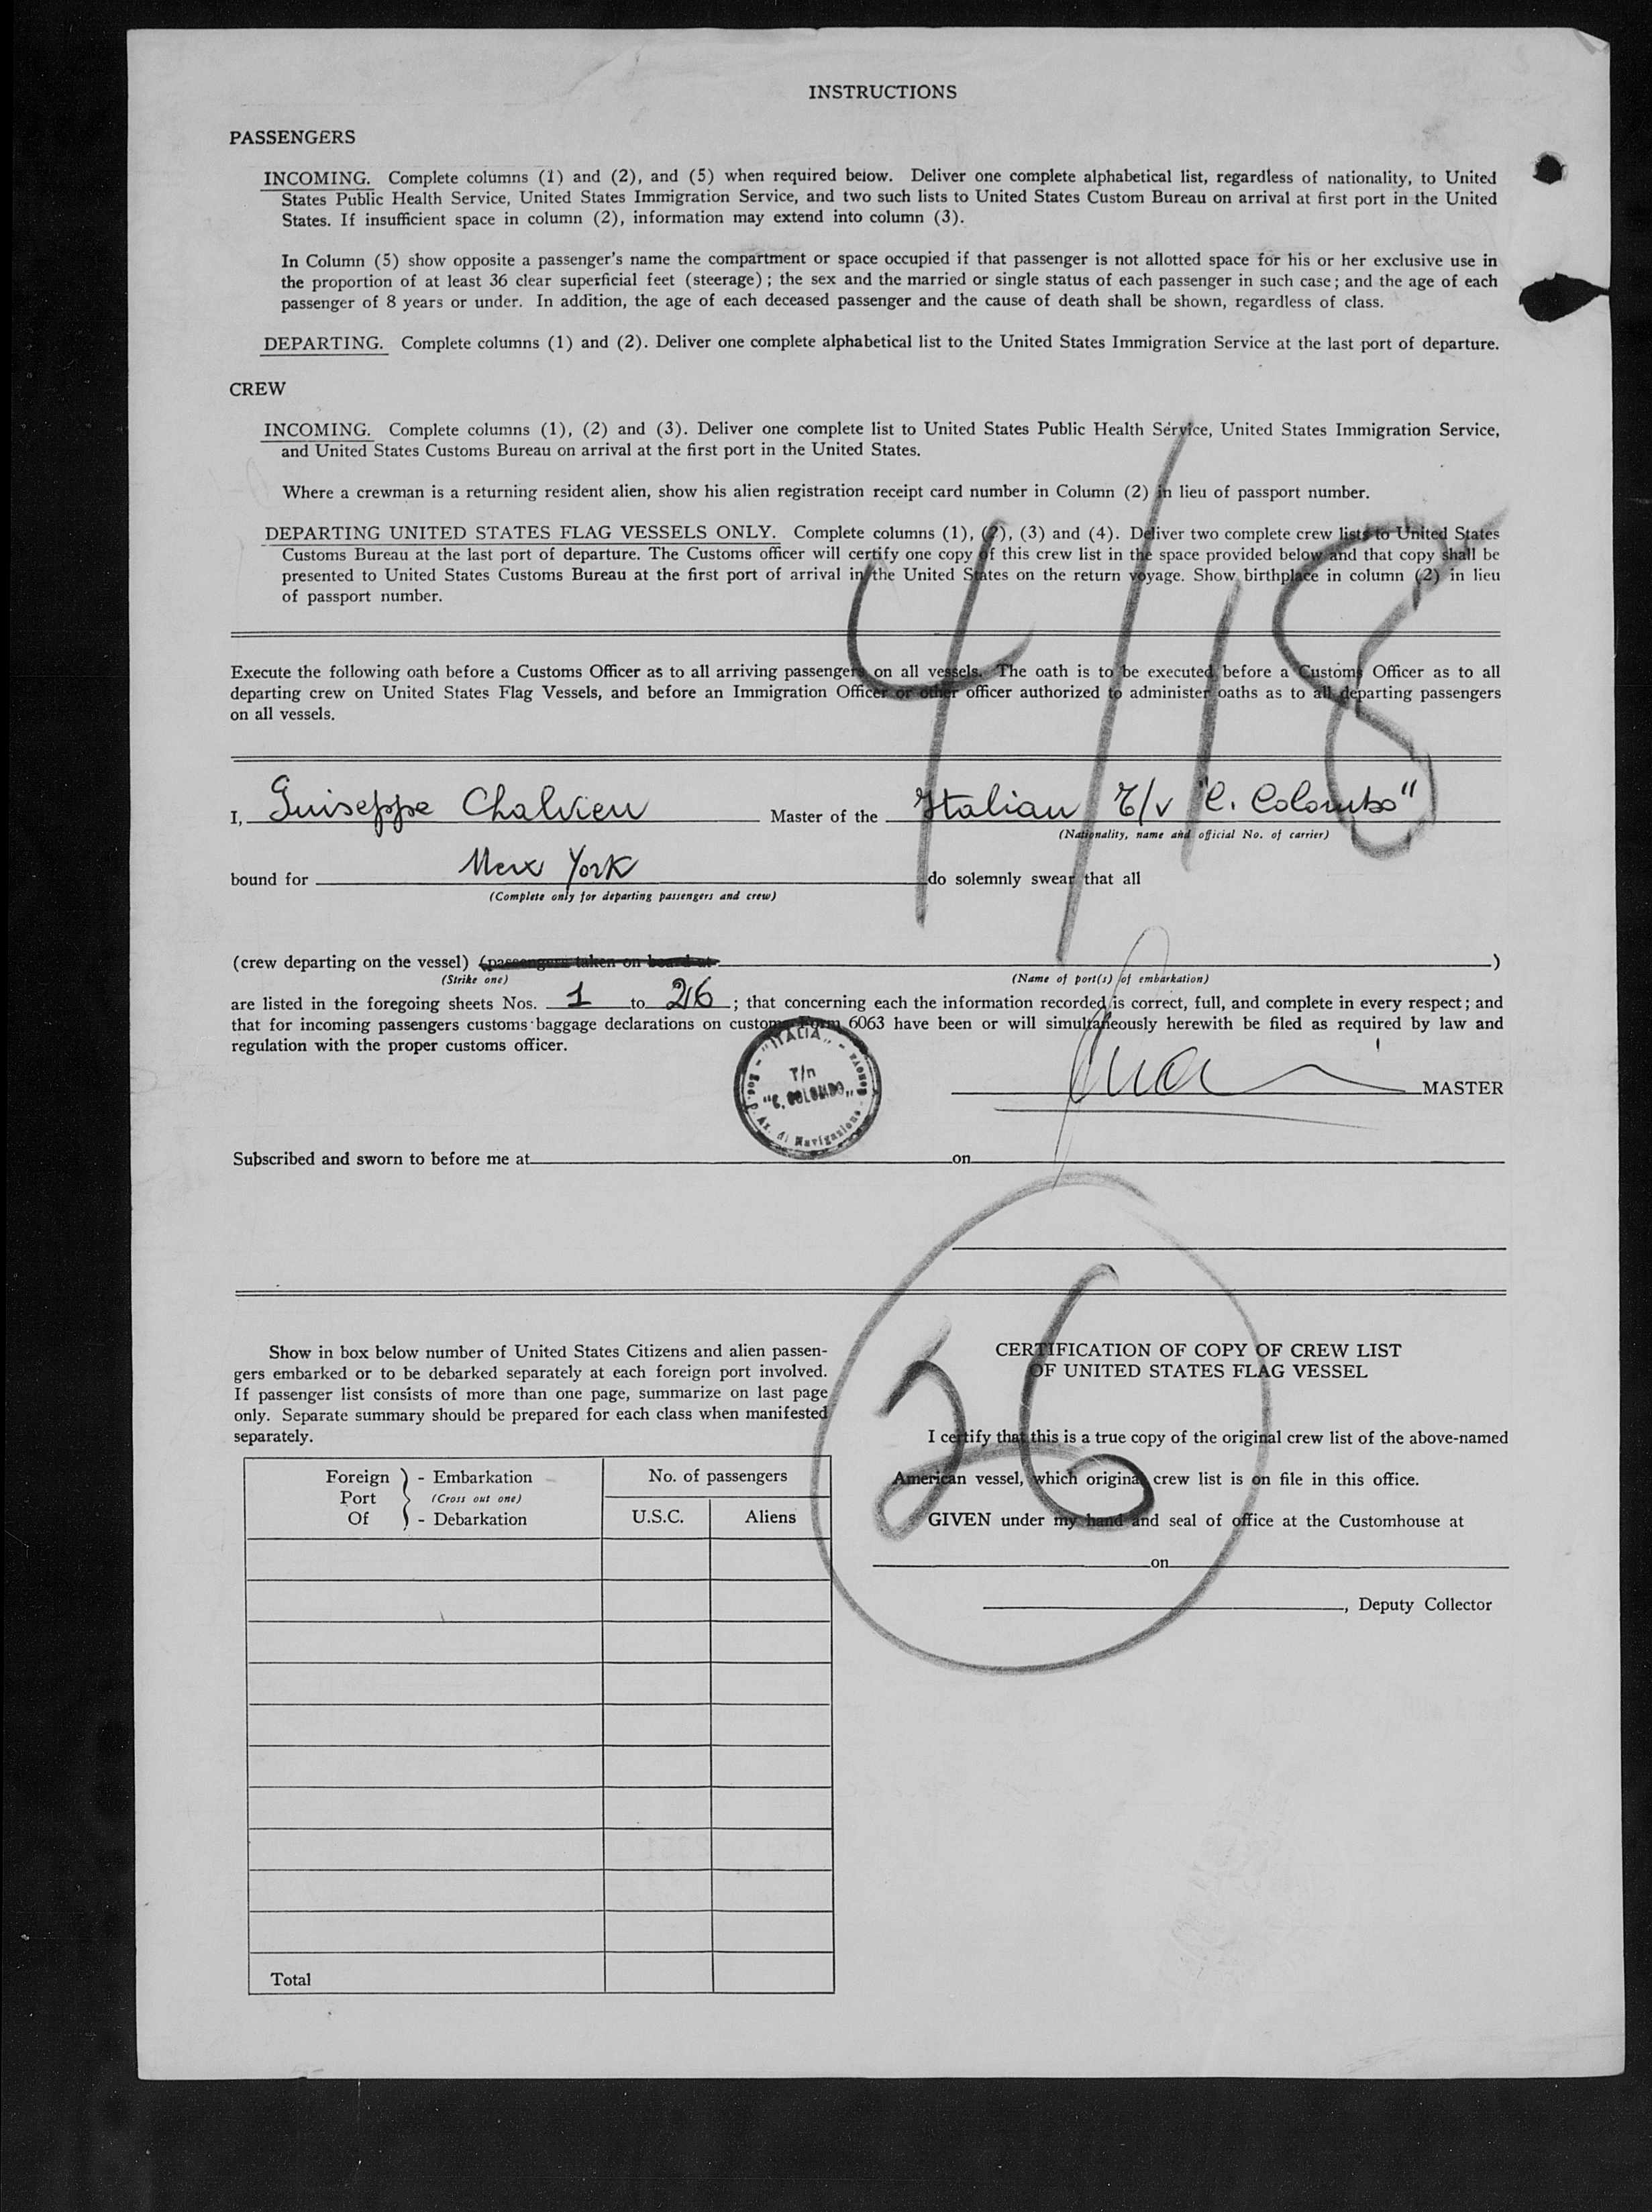 INSTRUCTIONS
PASSENGERS
INCOMING. Complete columns (1) and (2), and (5) when required below. Deliver one complete alphabetical list, regardless of nationality, to United
States Public Health Service, United States Immigration Service, and two such lists to United States Custom Bureau on arrival at first port in the United
States. If insufficient space in column (2), information may extend into column (3).
In Column (5) show opposite a passenger's name the compartment or space occupied if that passenger is not allotted space for his or her exclusive use in
the proportion of at least 36 clear superficial feet (steerage); the sex and the married or single status of each passenger in such case; and the age of each
passenger of 8 years or under. In addition, the age of each deceased passenger and the cause of death shall be shown, regardless of class.
DEPARTING. Complete columns (1) and (2). Deliver one complete alphabetical list to the United States Immigration Service at the last port of departure.
CREW
INCOMING. Complete columns (1), (2) and (3). Deliver one complete list to United States Public Health Service, United States Immigration Service,
and United States Customs Bureau on arrival at the first port in the United States.
Where a crewman is a returning resident alien, show his alien registration receipt card number in Column (2) in lieu of passport number.
DEPARTING UNITED STATES FLAG VESSELS ONLY. Complete columns (1), (2), (3) and (4). Deliver two complete crew lists to United States
Customs Bureau at the last port of departure. The Customs officer will certify one copy of this crew list in the space provided below and that copy shall be
presented to United States Customs Bureau at the first port of arrival in the United States on the return voyage. Show birthplace in column (2) in lieu
of passport number.
4/18
Execute the following oath before a Customs Officer as to all arriving passengers on all vessels. The oath is to be executed before a Customs Officer as to all
departing crew on United States Flag Vessels, and before an Immigration Officer or other officer authorized to administer oaths as to all departing passengers
on all vessels.
I, Guiseppe Chalvien Master of the Italian T/v "C. Colombo"
(Nationality, name and official No. of carrier)
bound for New York do solemnly swear that all
(Complete only for departing passengers and crew)
(crew departing on the vessel) (passengers taken on board at )
(Strike one) (Name of port(s) of embarkation)
are listed in the foregoing sheets Nos. 1 to 26; that concerning each the information recorded is correct, full, and complete in every respect; and
that for incoming passengers customs baggage declarations on customs Form 6063 have been or will simultaneously herewith be filed as required by law and
regulation with the proper customs officer.
"ITALIA" - Soc. p. Az. di Navigazione - Genova
T/n
"C. COLOMBO"
MASTER
Subscribed and sworn to before me at on
26
Show in box below number of United States Citizens and alien passen-
gers embarked or to be debarked separately at each foreign port involved.
If passenger list consists of more than one page, summarize on last page
only. Separate summary should be prepared for each class when manifested
separately.
Foreign - Embarkation No. of passengers
Port (Cross out one)
Of - Debarkation U.S.C. Aliens
Total
CERTIFICATION OF COPY OF CREW LIST
OF UNITED STATES FLAG VESSEL
I certify that this is a true copy of the original crew list of the above-named
American vessel, which original crew list is on file in this office.
GIVEN under my hand and seal of office at the Customhouse at
on
, Deputy Collector